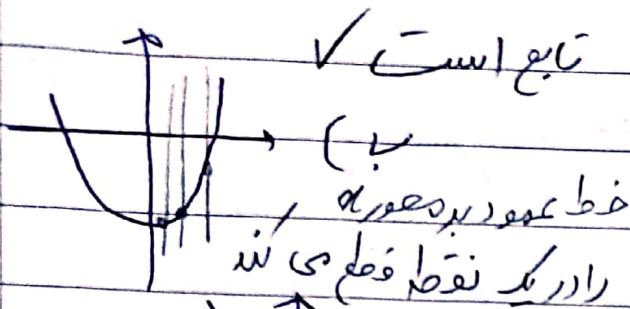 تابع است ✓
ب)
خط عمود بر محور x
را در یک نقطه قطع می کند